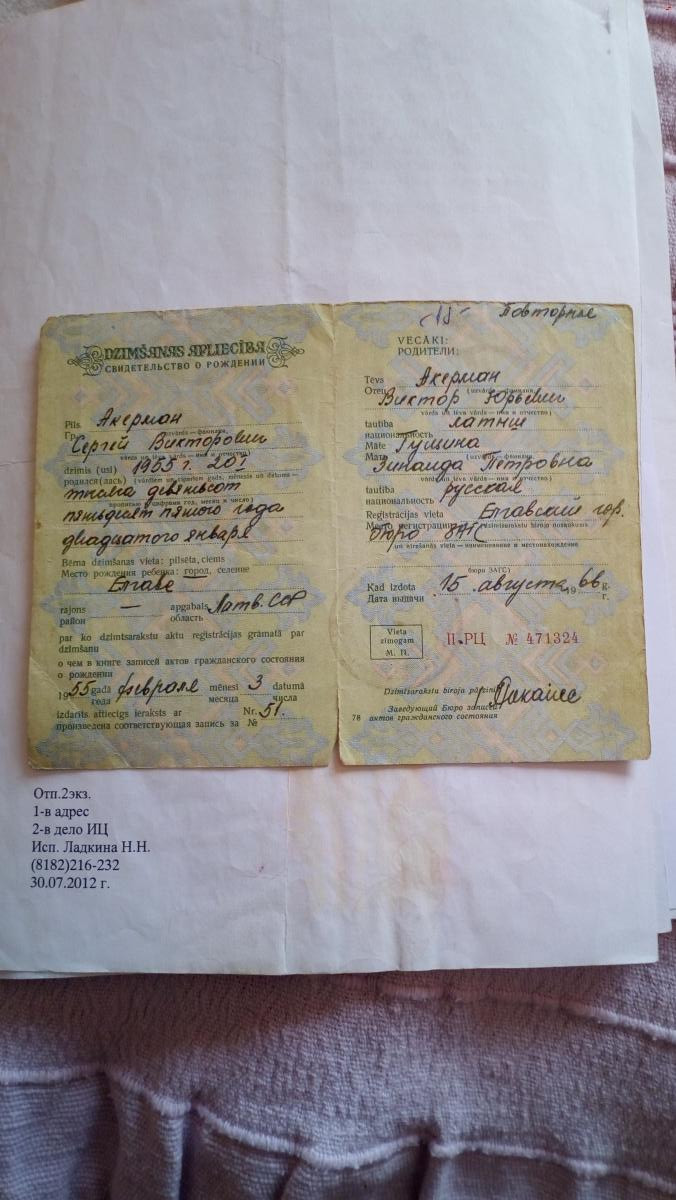 Повторное
DZIMŠANAS APLIECĪBA
СВИДЕТЕЛЬСТВО О РОЖДЕНИИ
Pils. Акерман
Гр.
(uzvārds — фамилия,
Сергей Викторович
vārds un tēva vārds — имя и отчество)
dzimis (usi) 1955 г. 20/I
родился(лась) (vārdiem un cipariem gads, mēnesis un datums —
тысяча девятьсот
прописью и цифрами год, месяц и число)
пятьдесят пятого года
двадцатого января
Bērna dzimšanas vieta: pilsēta, ciems
Место рождения ребенка: город, селение
Елгаве
rajons — apgabals Латв. ССР
район область
par ko dzimtsarakstu aktu reģistrācijas grāmatā par
dzimšanu
о чем в книге записей актов гражданского состояния
о рождении
1955 gadā февраля mēnesi 3 datumā
года месяца числа
izdarīts attiecīgs ieraksts ar Nr. 51.
произведена соответствующая запись за №
VECĀKI:
РОДИТЕЛИ:
Tēvs Акерман
Отец (uzvārds — фамилия,
Виктор Юрьевич
vārds un tēva vārds — имя и отчество)
tautība латыш
национальность
Māte
Мать (uzvārds — фамилия,
Зинаида Петровна
vārds un tēva vārds — имя и отчество)
tautība русская
национальность
Reģistrācijas vieta Елгавский гор.
Место регистрации (dzimtsarakstu biroja nosaukums
бюро ЗАГС
un atrašanās vieta — наименование и местонахождение
бюро ЗАГС)
Kad izdota 15 августа 1966 g.
Дата выдачи г.
Vieta
zīmogam
М. П.
II-РЦ № 471324
Dzimtsarakstu biroja pārzinis
Заведующий Бюро записи
78 актов гражданского состояния
Отп.2экз.
1-в адрес
2-в дело ИЦ
Исп. Ладкина Н.Н.
(8182)216-232
30.07.2012 г.